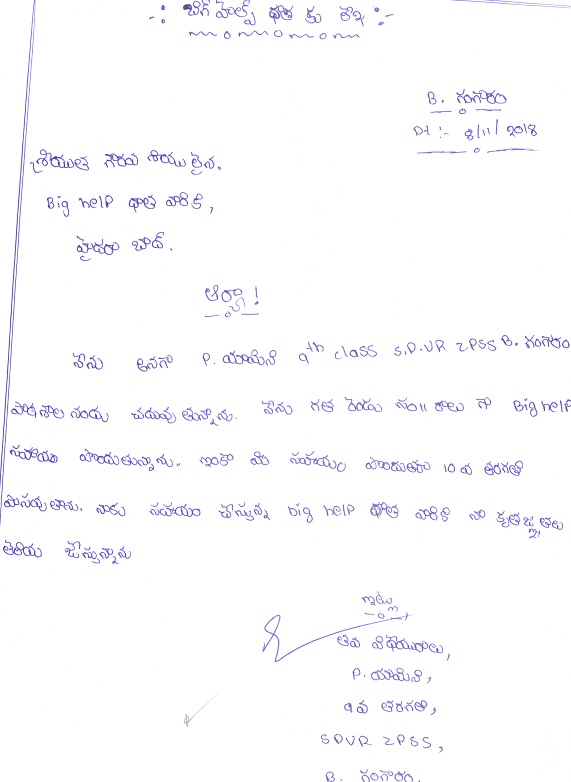 -: బిగ్ హెల్ప్ దాత కు లేఖ :-
B. గంగారం
Dt :- 8/11/2018
శ్రీయుత గౌరవ నీయులైన.
Big help దాత వారికి,
హైదరా బాద్.
ఆర్యా!
నేను అనగా P. యామిని 9th class S.P.VR ZPSS B. గంగారం
పాఠశాల నందు చదువు తున్నాను. నేను గత రెండు సం॥రాలు గా Big help
సహాయం పొందుతున్నాను. ఇంకా మీ సహాయం పొందుతూ 10 వ తరగతి
పాసవు తాను. నాకు సహాయం చేస్తున్న big help దాత వారికి నా కృతజ్ఞతలు
తెలియ జేస్తున్నాను
ఇట్లు
తమ విధేయురాలు,
P. యామిని,
9వ తరగతి,
SPVR ZPSS,
B. గంగారం.